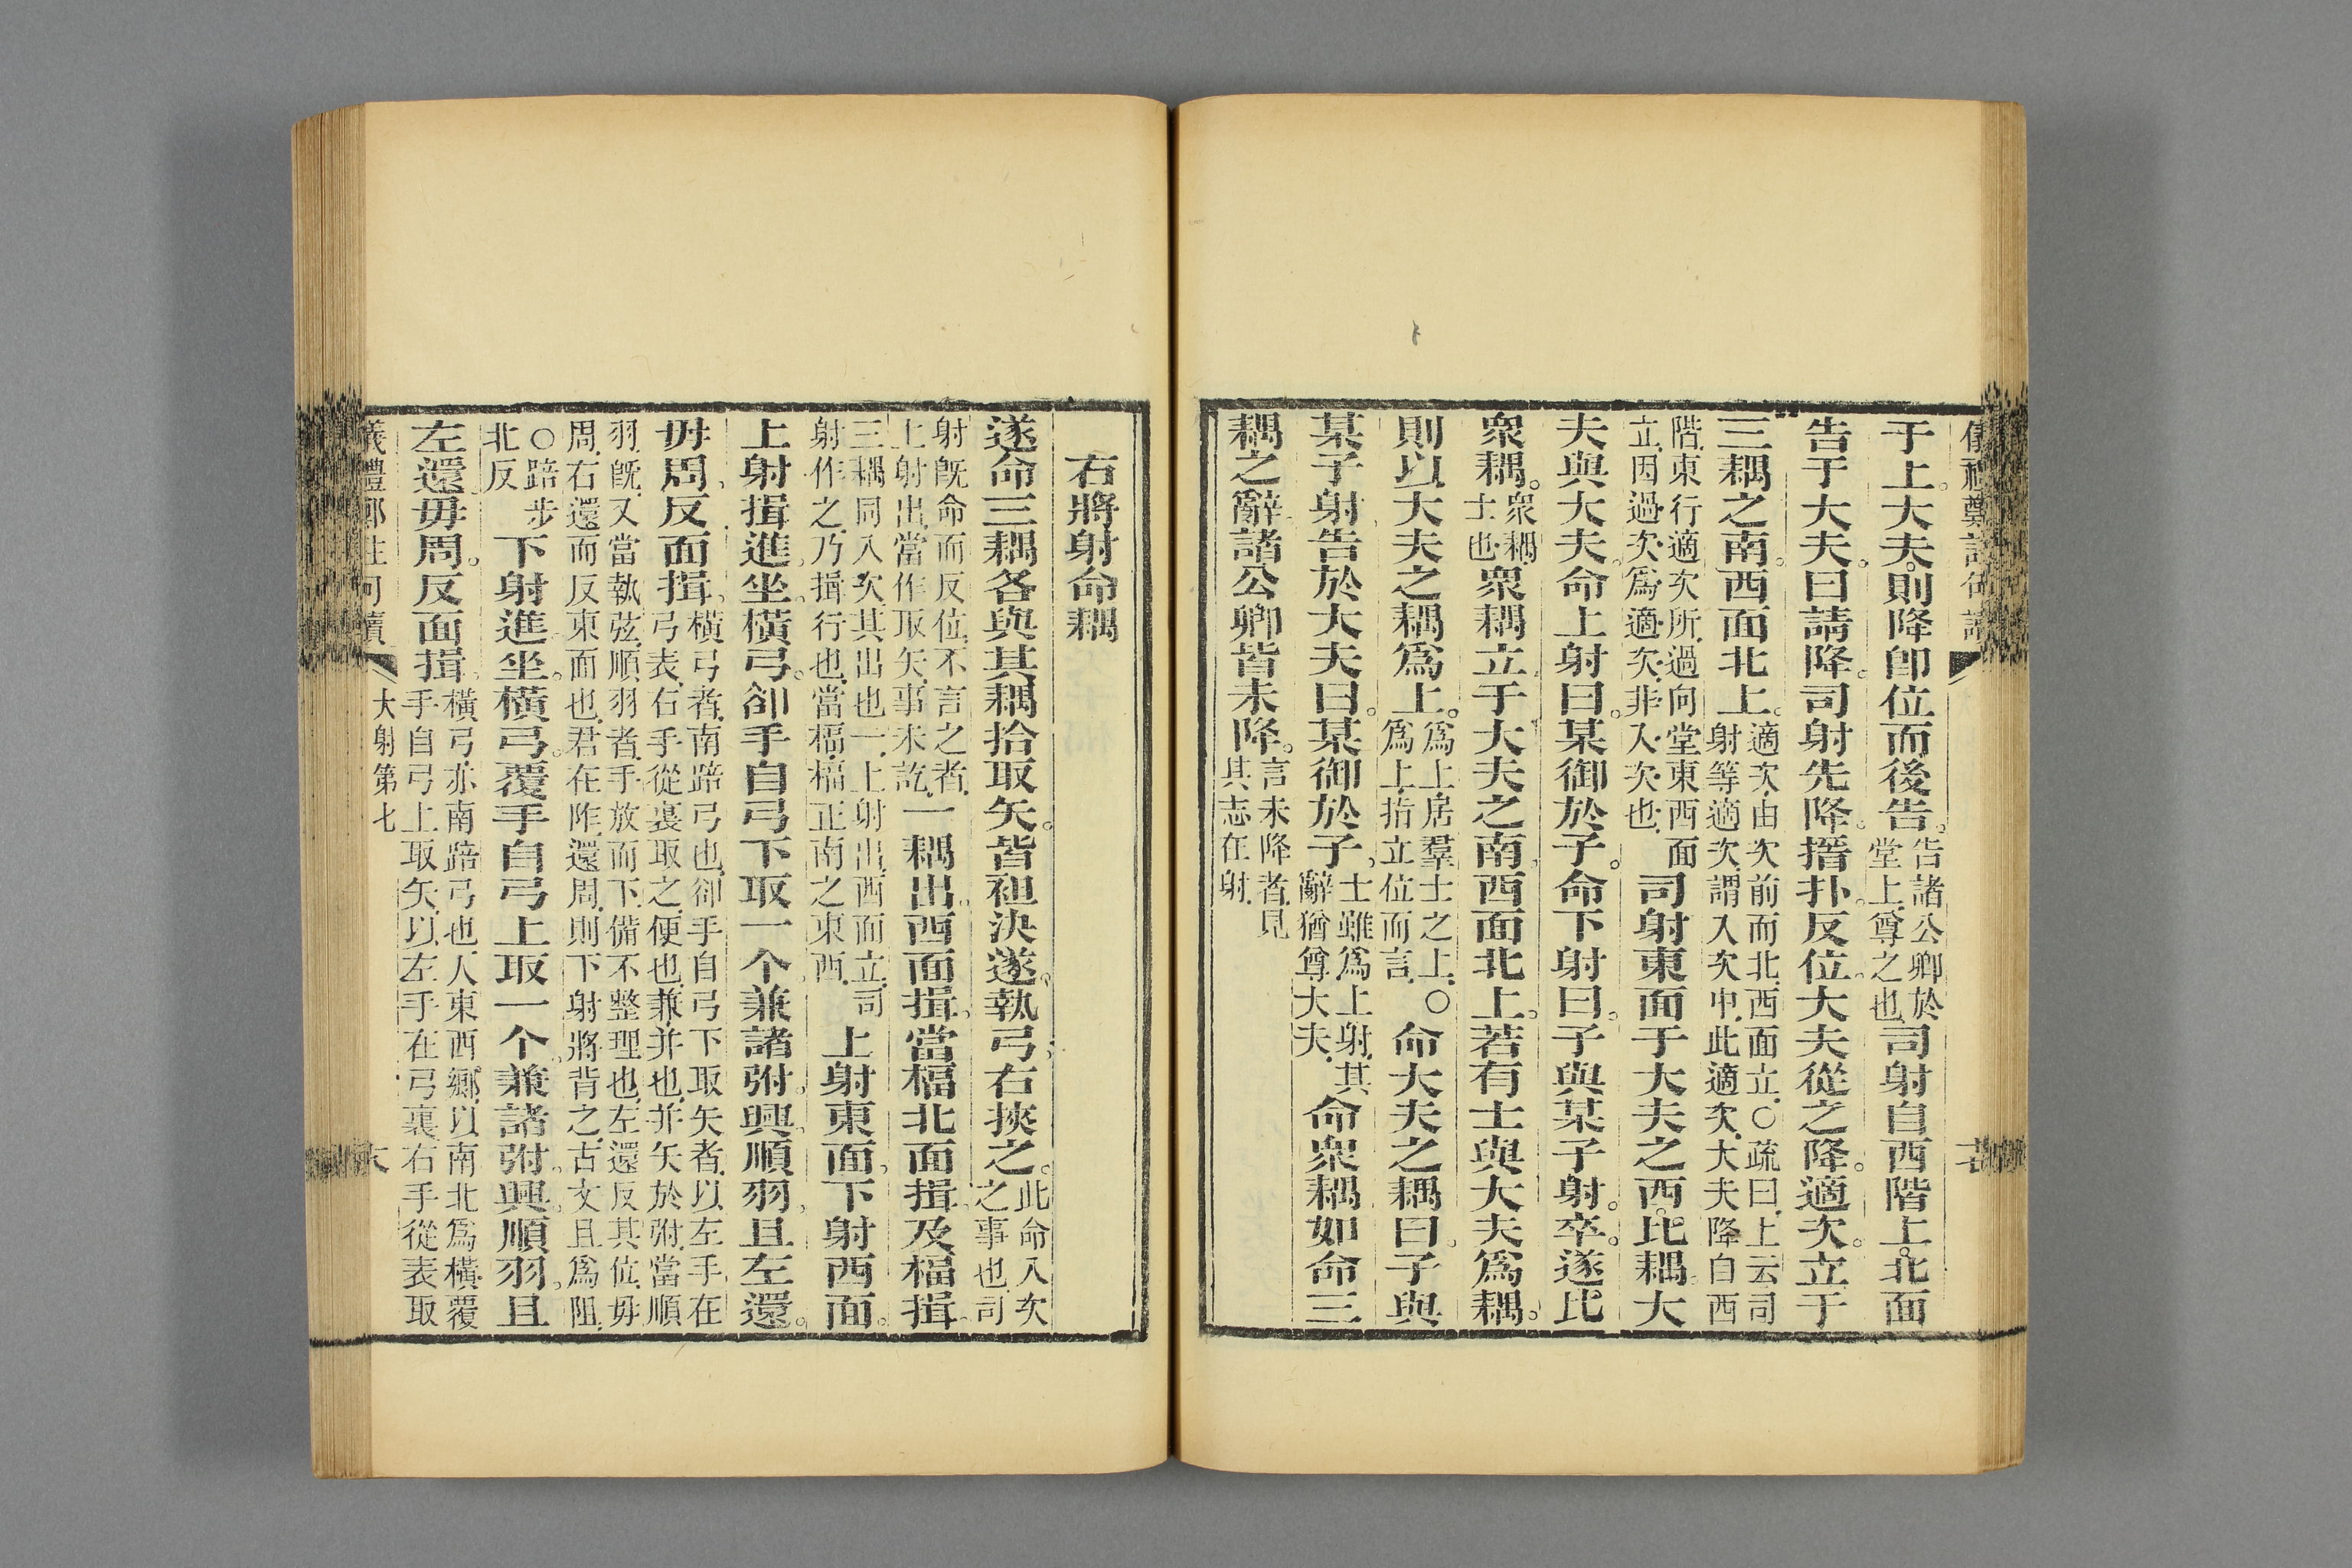 于上大夫。則降卽位而後告。告諸公卿於堂上尊之也司射自西階上。北面
告于大夫。曰請降。司射先降。搢扑。反位。大夫從之降。適次。立于
三耦之南。西面北上。適次由次前而北西面立。○疏曰上云司射等適次謂入次中此適次大夫降自西
階東行適次所過向堂東西面立因過次爲適次非入次也司射東面于大夫之西。比耦。大
夫與大夫。命上射曰。某御於子。命下射曰。子與某子射。卒。遂比
衆耦。衆耦士也衆耦立于大夫之南。西面北上。若有士與大夫爲耦。
則以大夫之耦爲上。爲上居羣士之上○爲上指立位而言命大夫之耦曰。子與
某子射。告於大夫曰。某御於子。士雖爲上射其辭猶尊大夫命衆耦如命三
耦之辭。諸公卿皆未降。言未降者見其志在射
右將射命耦
遂命三耦各與其耦拾取矢。皆袒決遂。執弓。右挾之。此命入次之事也司
射旣命而反位不言之者上射出當作取矢事未訖一耦出。西面揖。當楅北面揖。及楅揖。
三耦同入次其出也一上射出西面立司射作之乃揖行也當楅楅正南之東西上射東面。下射西面。
上射揖進。坐橫弓。卻手自弓下取一个。兼諸弣。興。順羽。且左還。
毋周。反面揖。橫弓者南踣弓也卻手自弓下取矢者以左手在弓表右手從裏取之便也兼并也并矢於弣當順
羽旣又當執弦順羽者手放而下備不整理也左還反其位毋周右還而反東面也君在阼還周則下射將背之古文且爲阻
○踣步北反下射進。坐橫弓。覆手自弓上取一个。兼諸弣。興。順羽。且
左還。毋周。反面揖。橫弓亦南踣弓也人東西鄉以南北爲橫覆手自弓上取矢以左手在弓裏右手從表取
大射第七